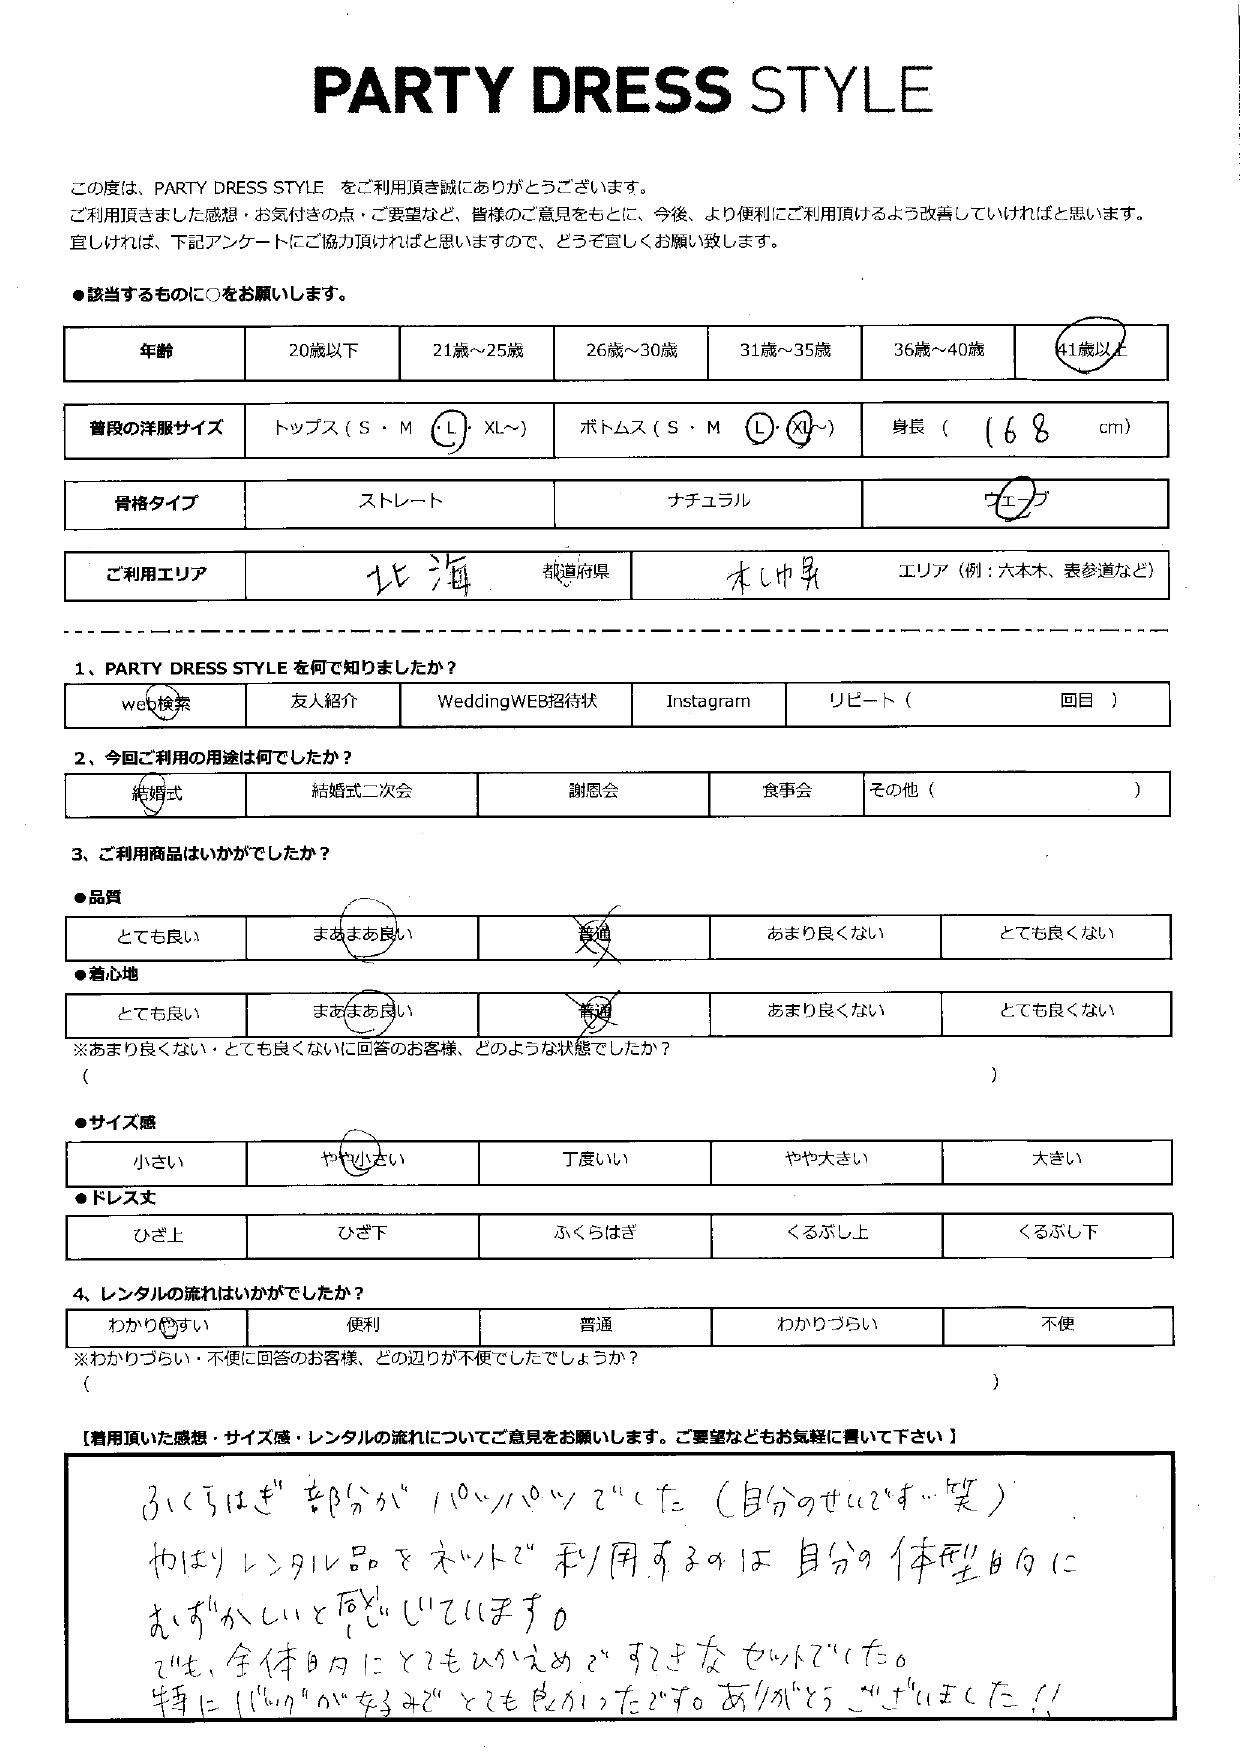 PARTY DRESS STYLE
この度は、PARTY DRESS STYLE　をご利用頂き誠にありがとうございます。
ご利用頂きました感想・お気付きの点・ご要望など、皆様のご意見をもとに、今後、より便利にご利用頂けるよう改善していければと思います。
宜しければ、下記アンケートにご協力頂ければと思いますので、どうぞ宜しくお願い致します。
●該当するものに○をお願いします。
年齢 20歳以下 21歳～25歳 26歳～30歳 31歳～35歳 36歳～40歳 41歳以上
普段の洋服サイズ トップス ( S ・ M ・L・ XL～) ボトムス ( S ・ M ・L・XL～) 身長 ( 168 cm)
骨格タイプ ストレート ナチュラル ウェーブ
ご利用エリア 北海 都道府県 エリア（例：六本木、表参道など）
1、PARTY DRESS STYLE を何で知りましたか？
web検索 友人紹介 WeddingWEB招待状 Instagram リピート ( 回目 )
2、今回ご利用の用途は何でしたか？
結婚式 結婚式二次会 謝恩会 食事会 その他 ( )
3、ご利用商品はいかがでしたか？
●品質
とても良い まあまあ良い 普通 あまり良くない とても良くない
●着心地
とても良い まあまあ良い 普通 あまり良くない とても良くない
※あまり良くない・とても良くないに回答のお客様、どのような状態でしたか？
( )
●サイズ感
小さい やや小さい 丁度いい やや大きい 大きい
●ドレス丈
ひざ上 ひざ下 ふくらはぎ くるぶし上 くるぶし下
4、レンタルの流れはいかがでしたか？
わかりやすい 便利 普通 わかりづらい 不便
※わかりづらい・不便に回答のお客様、どの辺りが不便でしたでしょうか？
( )
【着用頂いた感想・サイズ感・レンタルの流れについてご意見をお願いします。ご要望などもお気軽に書いて下さい 】
ふくらはぎ 部分が パツパツでした（自分のせいです…笑）
やはり レンタル品をネットで 利用するのは 自分の体型的に
むずかしいと感じています。
でも、全体的にとてもひかえめで すてきなセットでした。
特にバッグが好みで とても良かったです。ありがとうございました!!